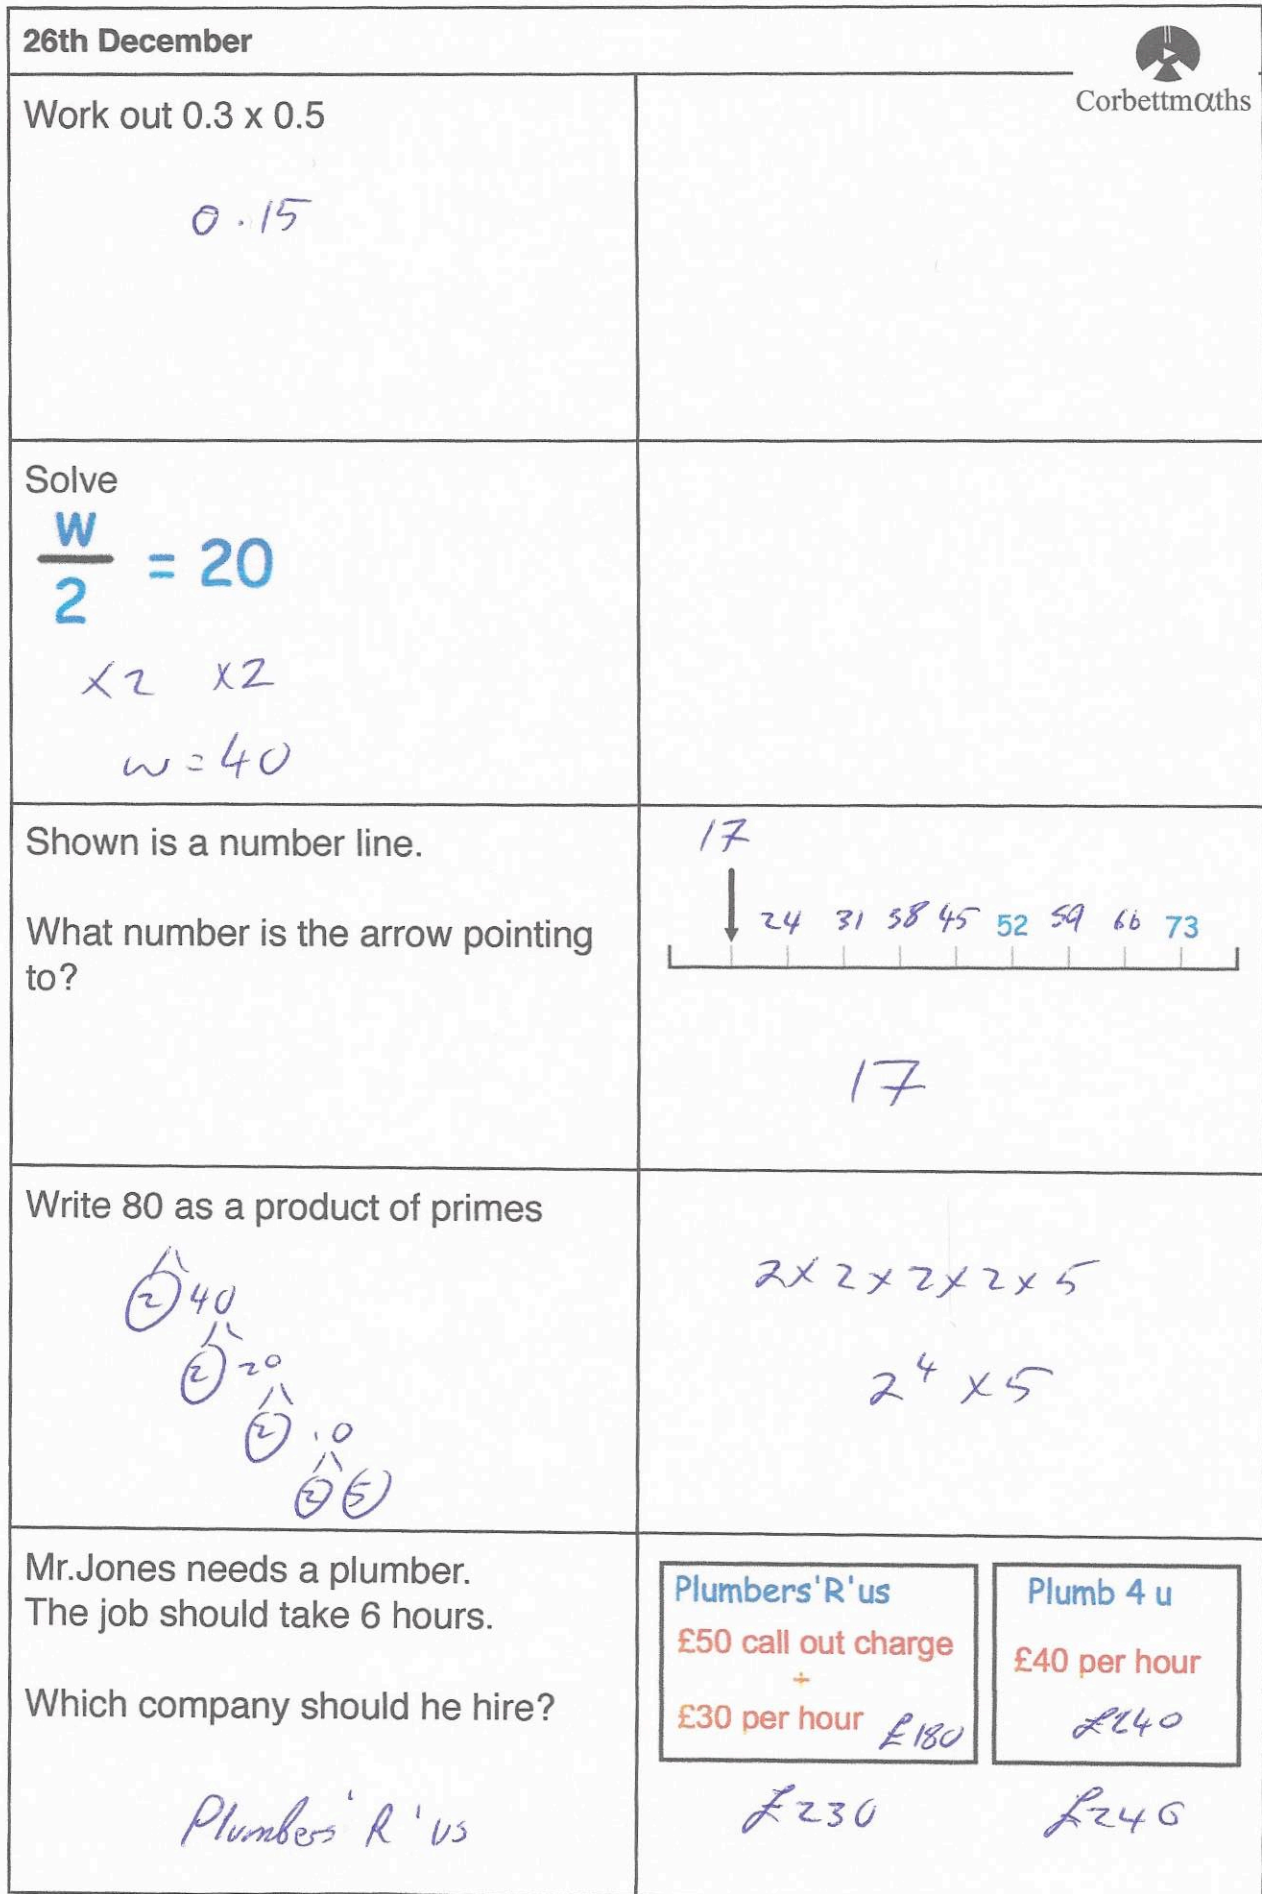 26th December
Corbettmαths
Work out 0.3 x 0.5
0.15
Solve
w
2
= 20
×2 ×2
w = 40
Shown is a number line.
What number is the arrow pointing
to?
17
24 31 38 45 52 59 66 73
17
Write 80 as a product of primes
2 40
2 20
2 10
2 5
2 × 2 × 2 × 2 × 5
2⁴ × 5
Mr.Jones needs a plumber.
The job should take 6 hours.
Which company should he hire?
Plumbers'R'us
Plumbers'R'us
£50 call out charge
+
£30 per hour £180
£230
Plumb 4 u
£40 per hour
£240
£240